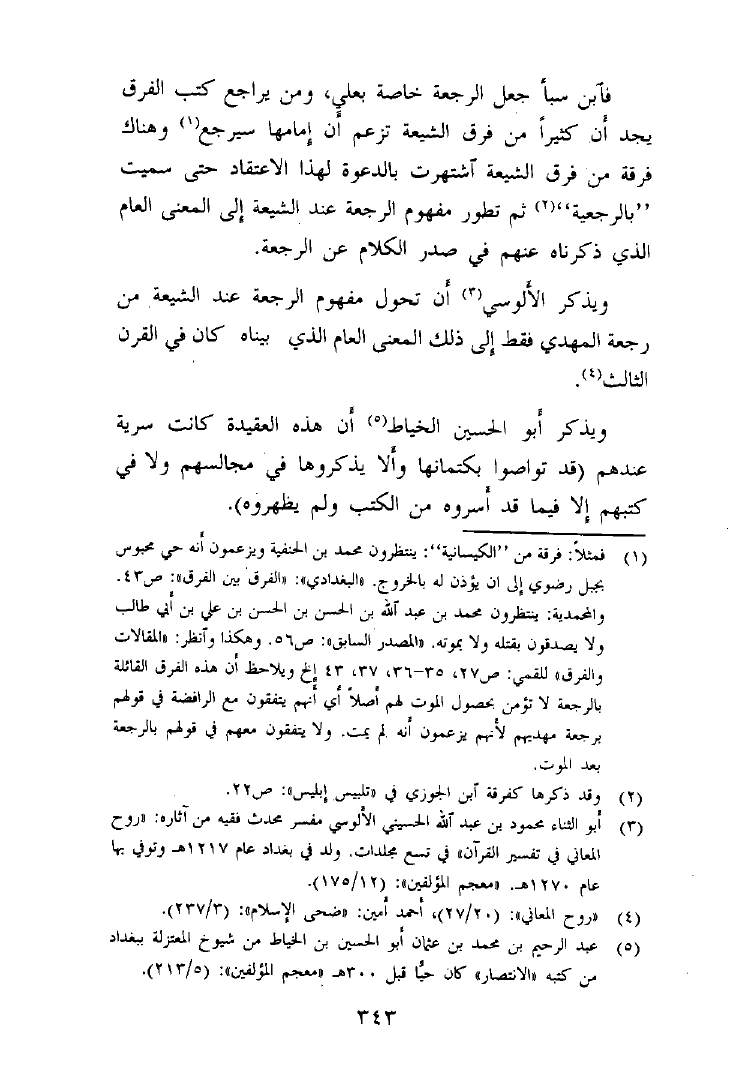 فآبن سبأ جعل الرجعة خاصة بعلي، ومن يراجع كتب الفرق
يجد أن كثيراً من فرق الشيعة تزعم أن إمامها سيرجع(١) وهناك
فرقة من فرق الشيعة آشتهرت بالدعوة لهذا الاعتقاد حتى سميت
“بالرجعية“(٢) ثم تطور مفهوم الرجعة عند الشيعة إلى المعنى العام
الذي ذكرناه عنهم في صدر الكلام عن الرجعة.
ويذكر الألوسي(٣) أن تحول مفهوم الرجعة عند الشيعة من
رجعة المهدي فقط إلى ذلك المعنى العام الذي بيناه كان في القرن
الثالث(٤).
ويذكر أبو الحسين الخياط(٥) أن هذه العقيدة كانت سرية
عندهم (قد تواصوا بكتمانها وألا يذكروها في مجالسهم ولا في
كتبهم إلا فيما قد أسروه من الكتب ولم يظهروه).
(١) فمثلاً: فرقة من “الكيسانية“: ينتظرون محمد بن الحنفية ويزعمون أنه حي محبوس
بجبل رضوي إلى ان يؤذن له بالخروج. «البغدادي»: «الفرق بين الفرق»: ص٤٣.
والمحمدية: ينتظرون محمد بن عبد آلله بن الحسن بن الحسن بن علي بن أبي طالب
ولا يصدقون بقتله ولا بموته. «المصدر السابق»: ص٥٦. وهكذا وآنظر: «المقالات
والفرق» للقمي: ص٢٧، ٣٥–٣٦، ٣٧، ٤٣ إلخ ويلاحظ أن هذه الفرق القائلة
بالرجعة لا تؤمن بحصول الموت لهم أصلاً أي أنهم يتفقون مع الرافضة في قولهم
برجعة مهديهم لأنهم يزعمون أنه لم يمت. ولا يتفقون معهم في قولهم بالرجعة
بعد الموت.
(٢) وقد ذكرها كفرقة آبن الجوزي في «تلبيس إبليس»: ص٢٢.
(٣) أبو الثناء محمود بن عبد آلله الحسيني الألوسي مفسر محدث فقيه من آثاره: «روح
المعاني في تفسير القرآن» في تسع مجلدات. ولد في بغداد عام ١٢١٧هـ وتوفي بها
عام ١٢٧٠هـ. «معجم المؤلفين»: (١٧٥/١٢).
(٤) «روح المعاني»: (٢٧/٢٠)، أحمد أمين: «ضحى الإسلام»: (٢٣٧/٣).
(٥) عبد الرحيم بن محمد بن عثمان أبو الحسين بن الخياط من شيوخ المعتزلة ببغداد
من كتبه «الانتصار» كان حيًّا قبل ٣٠٠هـ «معجم المؤلفين»: (٢١٣/٥).
٣٤٣